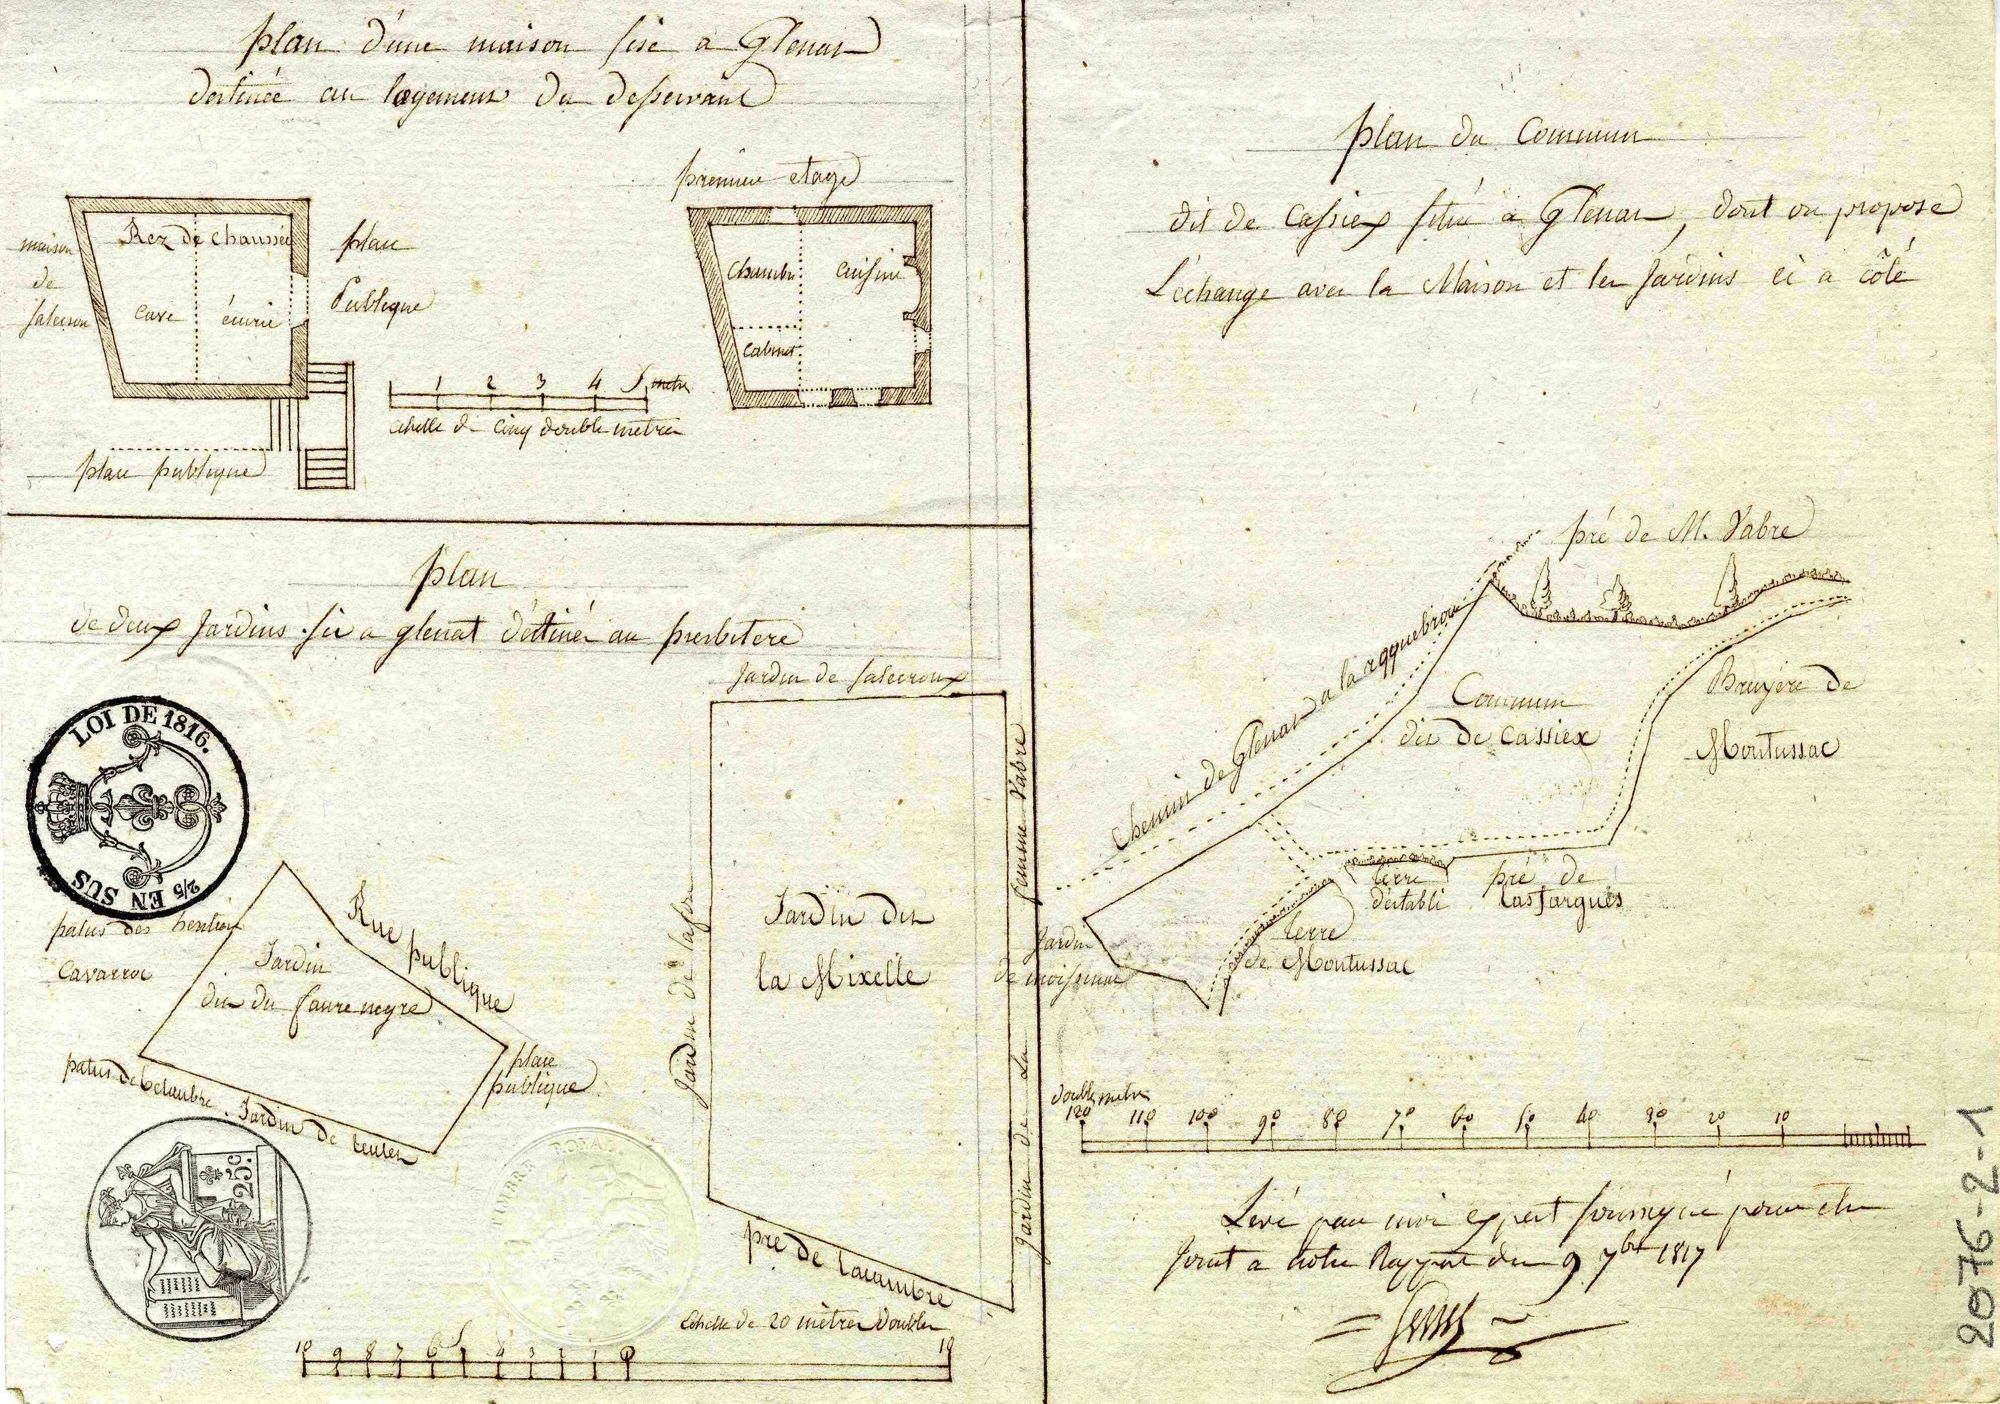 plan d'une maison sise a Glenat
destinée au logement du desservant
première etage
Rez de chaussée
cave
écurie
maison
de
plan
Publique
plan publique
1 2 3 4 5 metres
echelle de cinq double metres
chambre
cuisine
cabinet
plan
de deux Jardins sis a glenat déstinés au presbitere
LOI DE 1816.
2/5 EN SUS
patus des heritiers
Cavarroc
Rue publique
Jardin
dit du faure negre
place
publique
patus de Delaubre. Jardin de
25c
TIMBRE ROYAL
Jardin de
Jardin de
Jardin dit
la Mixelle
Jardin de La femme Vabre
pre de Lacambre
Echelle de 20 mètres doubles
10 9 8 7 6 5 4 3 2 1 0 10
plan du Commun
dit de Cassiex situé a Glenat, dont on propose
L'échange avec la Maison et les Jardins ci a côté
pré de M. Vabre
Chemin de Glenat a laroquebrou
Commun
dit de Cassiex
Bruyère de
Montussac
terre
d'éstabli
pré de
Lasfargues
terre
de Montussac
Jardin
de
doubles metres
120 110 100 90 80 70 60 50 40 30 20 10
Levé par moi expert soussigné pour etre
Joint a notre Rapport du 9 7bre 1817
2076-2-1